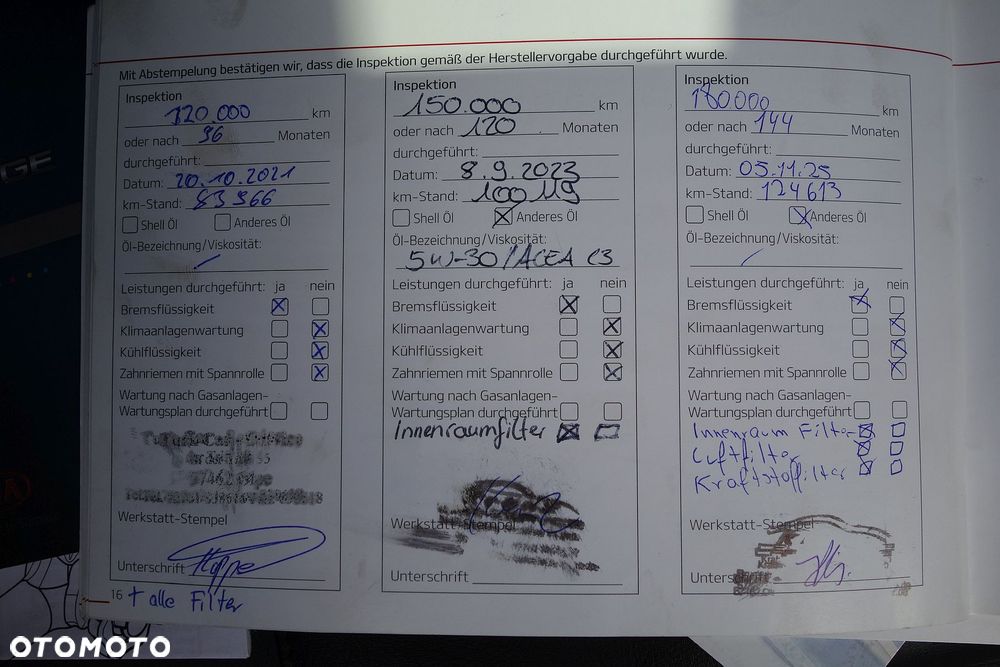 GE
Mit Abstempelung bestätigen wir, dass die Inspektion gemäß der Herstellervorgabe durchgeführt wurde.
Inspektion
120.000 km
oder nach 96 Monaten
durchgeführt:
Datum: 20.10.2021
km-Stand: 83966
Shell Öl Anderes Öl
Öl-Bezeichnung/Viskosität:
Leistungen durchgeführt: ja nein
Bremsflüssigkeit
Klimaanlagenwartung
Kühlflüssigkeit
Zahnriemen mit Spannrolle
Wartung nach Gasanlagen-
Wartungsplan durchgeführt
Werkstatt-Stempel
Unterschrift
16 + alle Filter
Inspektion
150.000 km
oder nach 120 Monaten
durchgeführt:
Datum: 8.9.2023
km-Stand: 100119
Shell Öl Anderes Öl
Öl-Bezeichnung/Viskosität:
5W-30/ACEA C3
Leistungen durchgeführt: ja nein
Bremsflüssigkeit
Klimaanlagenwartung
Kühlflüssigkeit
Zahnriemen mit Spannrolle
Wartung nach Gasanlagen-
Wartungsplan durchgeführt
Innenraumfilter
Werkstatt-Stempel
Unterschrift
Inspektion
180000 km
oder nach 144 Monaten
durchgeführt:
Datum: 05.11.25
km-Stand: 124613
Shell Öl Anderes Öl
Öl-Bezeichnung/Viskosität:
Leistungen durchgeführt: ja nein
Bremsflüssigkeit
Klimaanlagenwartung
Kühlflüssigkeit
Zahnriemen mit Spannrolle
Wartung nach Gasanlagen-
Wartungsplan durchgeführt
Innenraum Filter
Luftfilter
Kraftstoffilter
Werkstatt-Stempel
OTOMOTO